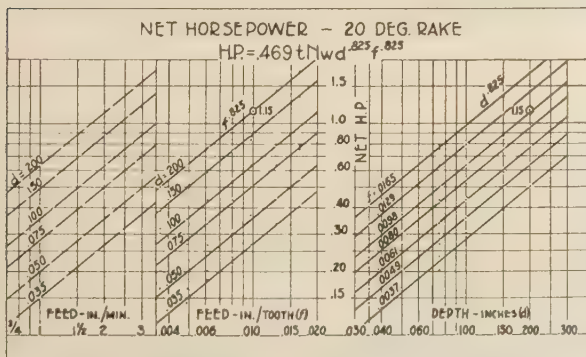 NET HORSEPOWER - 20 DEG. RAKE
H.P. = .469 t N w d .825 f .825
d = .200
.150
.100
.075
.050
.035
FEED - IN./MIN.
3/4 1 1½ 2 3
f .825
1.15
d = .200
.150
.100
.075
.050
.035
FEED - IN./TOOTH (f)
.004 .006 .010 .015 .020
NET H.P.
1.5
1.0
.80
.60
.40
.30
.20
.15
d .825
1.15
f = .0165
.0129
.0098
.0080
.0061
.0049
.0037
DEPTH - INCHES (d)
.030 .040 .060 .100 .150 .200 .300